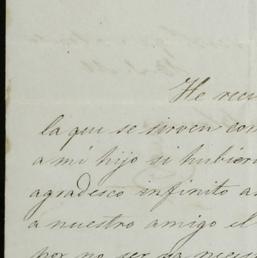 He reci
la que se sirven com
a mi hijo si hubier
agradesco infinito a
a nuestro amigo el
por no ser ya neces